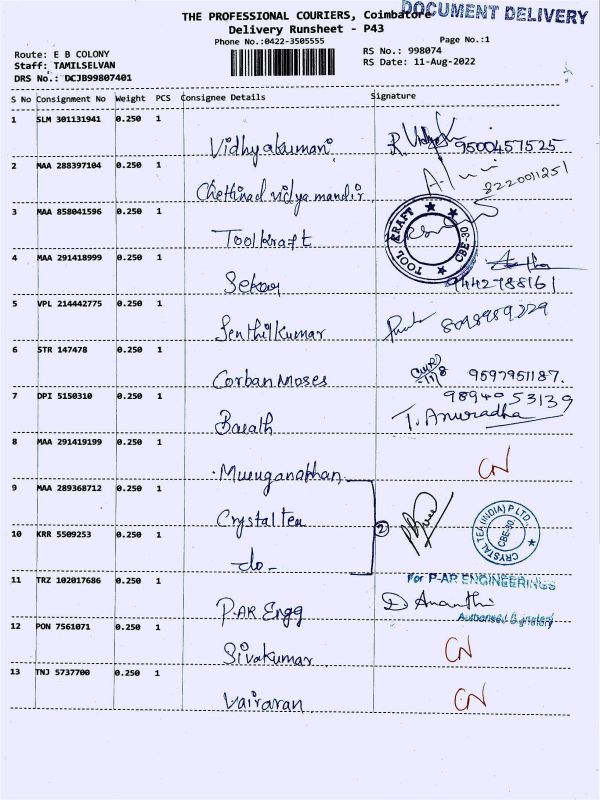 THE PROFESSIONAL COURIERS, Coimbatore
DOCUMENT DELIVERY
Delivery Runsheet - P43
Phone No.:0422-3505555
Page No.:1
Route: E B COLONY
RS No.: 998074
Staff: TAMILSELVAN
RS Date: 11-Aug-2022
DRS No.: DCJB99807401
S No Consignment No Weight PCS Consignee Details Signature
1 SLM 301131941 0.250 1
Vidhyakumari 9500457525
2 MAA 288397104 0.250 1
Chettinad vidya mandir 8220011251
3 MAA 858041596 0.250 1
Toolkraft TOOL KRAFT CBE-30
4 MAA 291418999 0.250 1
Sekar 9442788161
5 VPL 214442775 0.250 1
Senthilkumar 8098989229
6 STR 147478 0.250 1
Corban Moses 11/8 9597951187.
7 DPI 5150310 0.250 1
Barath 9894053139
T. Anuradha
8 MAA 291419199 0.250 1
Muruganathan CN
9 MAA 289368712 0.250 1
Crystal tea 2 CRYSTAL TEA (INDIA) P LTD., CBE-30.
10 KRR 5509253 0.250 1
-do-
11 TRZ 102017686 0.250 1
For P-AR ENGINEERINGS
P.AR Engg D Ananthi
Authorised Signatory
12 PON 7561071 0.250 1
Sivakumar CN
13 TNJ 5737700 0.250 1
Vairavan CN